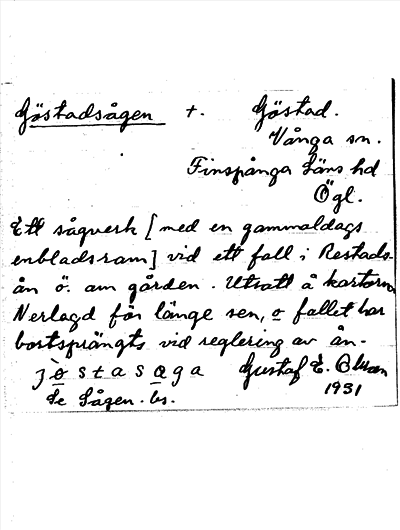 Göstadsågen +. Göstad.
Vånga sn.
Finspånga läns hd
Ögl.
Ett sågverk [med en gammaldags
enbladsram] vid ett fall i Restads-
ån ö. om gården. Utsatt å kartorna
Nerlagd för länge sen, o fallet har
bortsprängts vid reglering av ån.
jòstasaga Gustaf E. Olsson
Se Sågen. bs. 1931